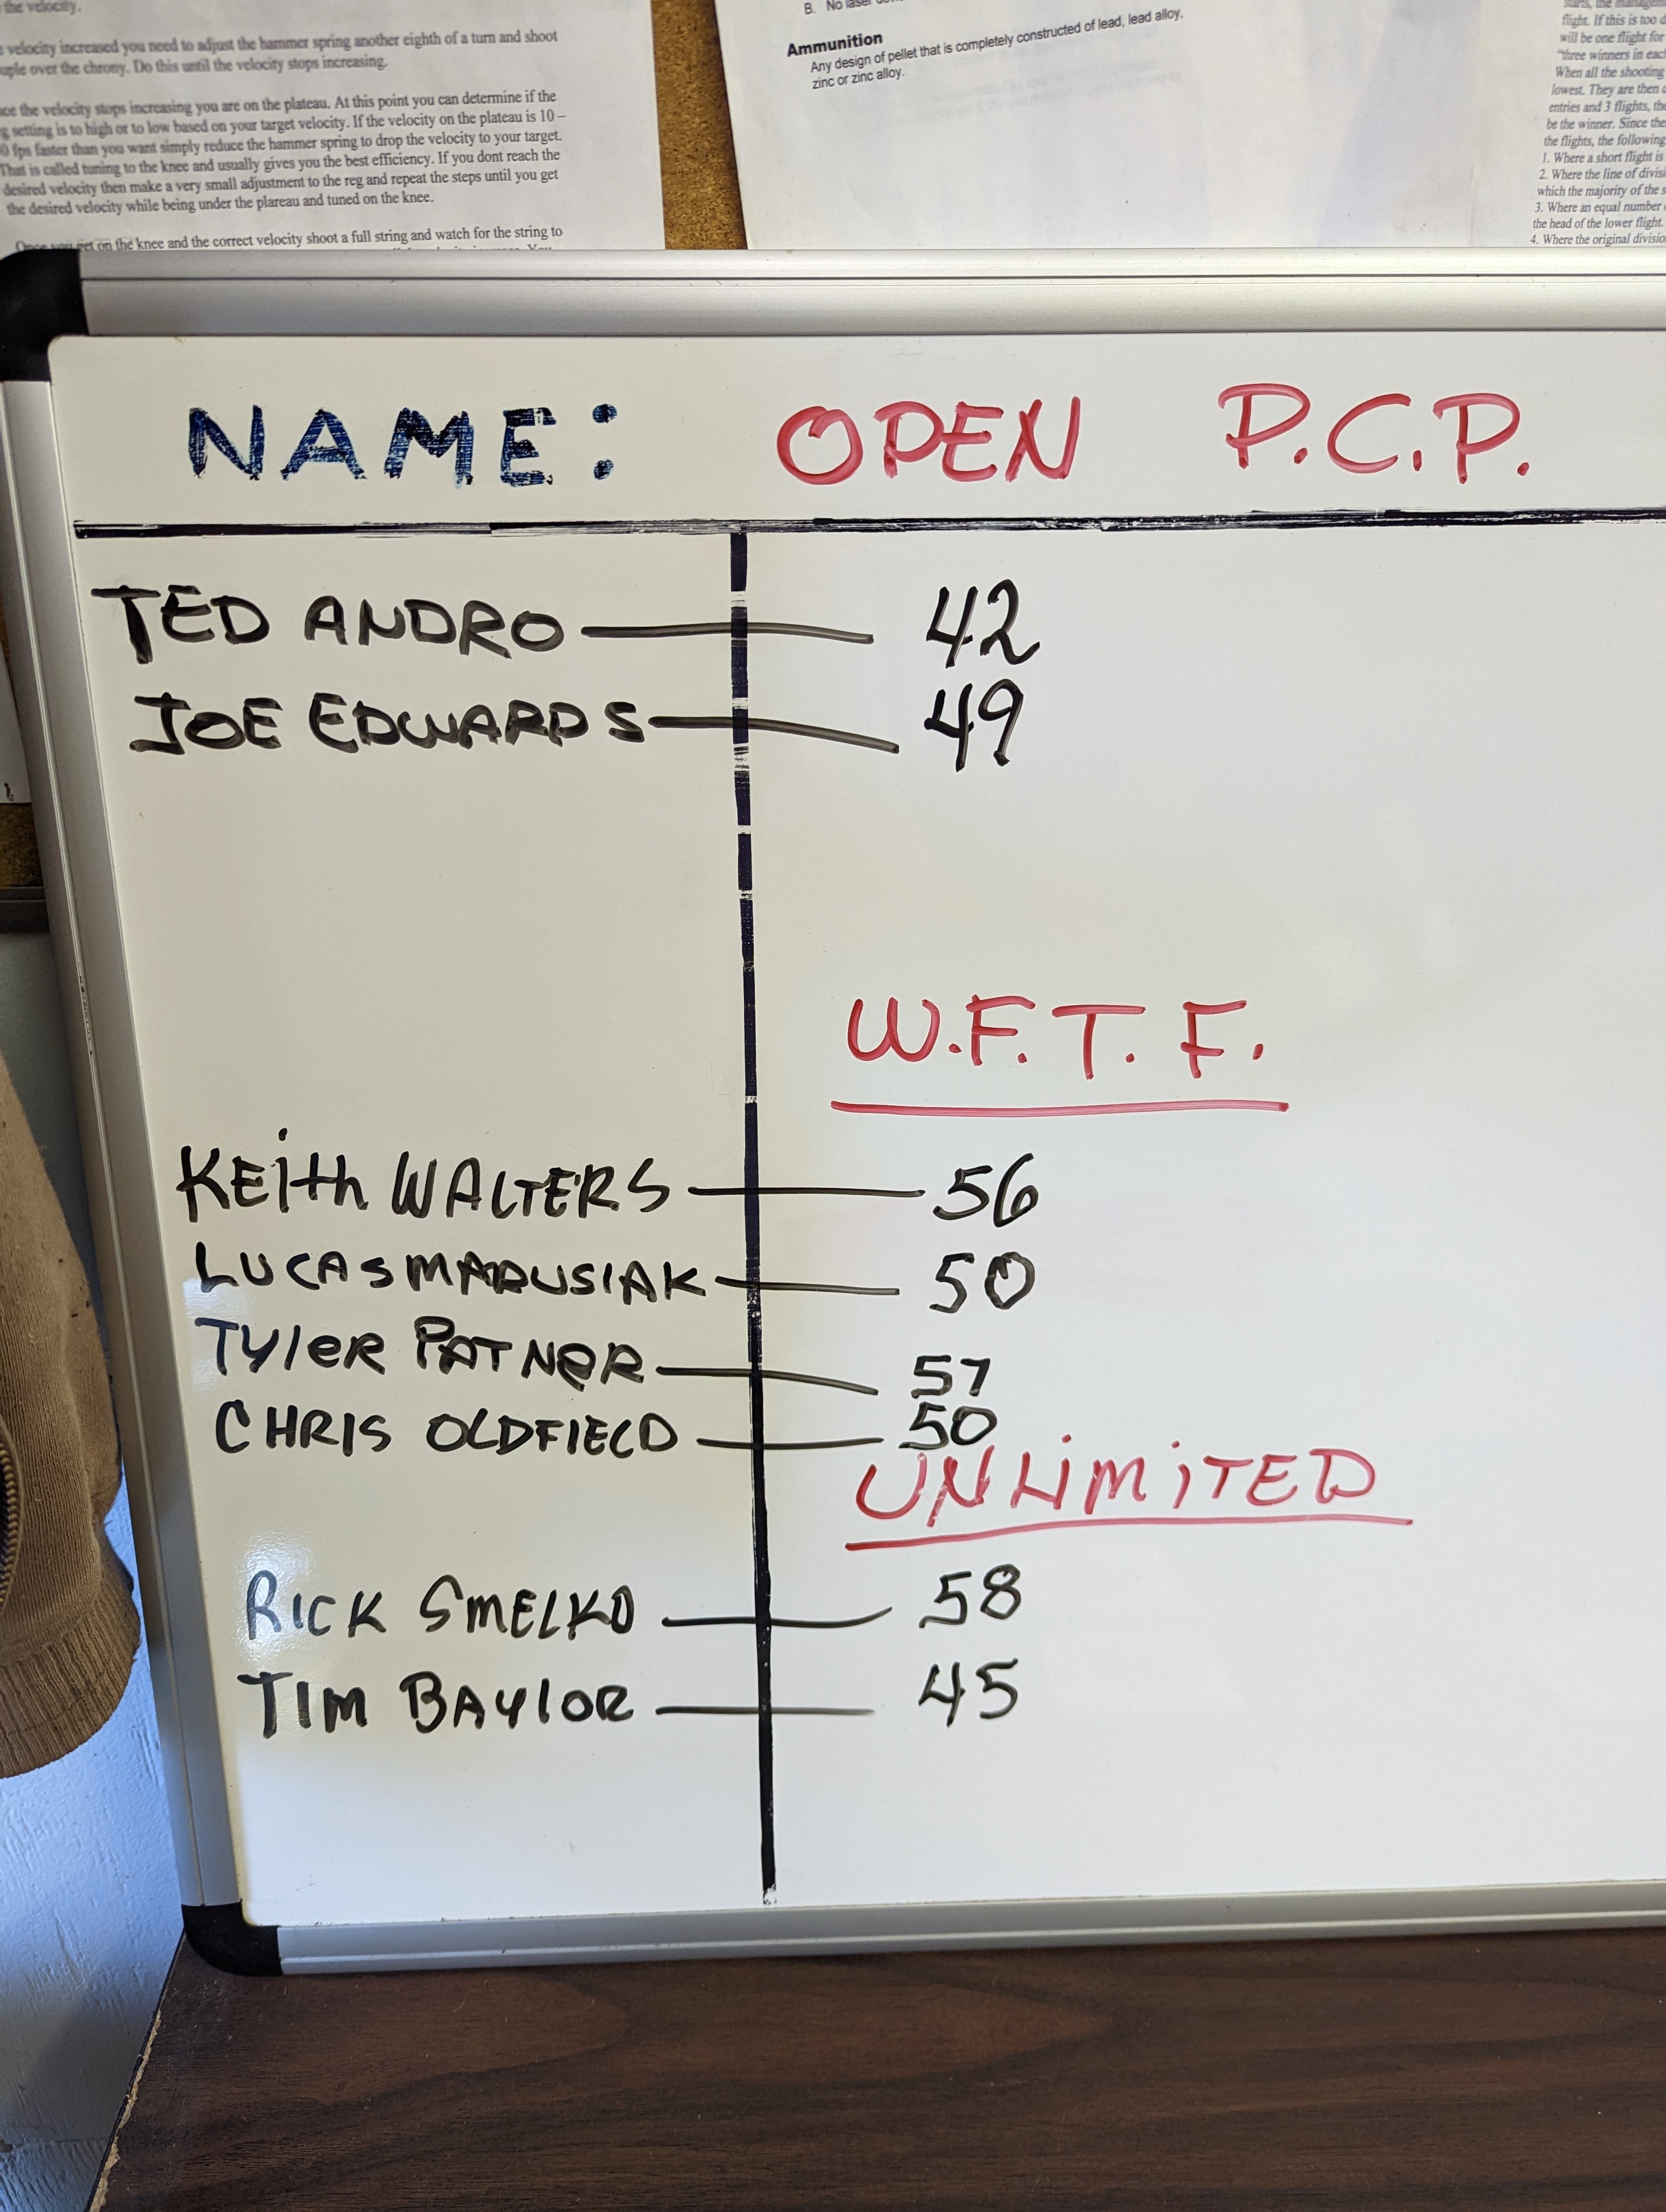 the velocity.
velocity increased you need to adjust the hammer spring another eighth of a turn and shoot
over the chrony. Do this until the velocity stops increasing.
the velocity stops increasing you are on the plateau. At this point you can determine if the
setting is to high or to low based on your target velocity. If the velocity on the plateau is 10 –
fps faster than you want simply reduce the hammer spring to drop the velocity to your target.
That is called tuning to the knee and usually gives you the best efficiency. If you dont reach the
desired velocity then make a very small adjustment to the reg and repeat the steps until you get
the desired velocity while being under the plareau and tuned on the knee.
Once you get on the knee and the correct velocity shoot a full string and watch for the string to
B. No laser
Ammunition
Any design of pellet that is completely constructed of lead, lead alloy,
zinc or zinc alloy.
flight. If this is too
will be one flight for
"three winners in each
When all the shooting
lowest. They are then
entries and 3 flights, the
be the winner. Since the
the flights, the following
1. Where a short flight is
2. Where the line of
which the majority of the
3. Where an equal number
the head of the lower flight.
4. Where the original
NAME: OPEN P.C.P.
TED ANDRO — 42
JOE EDWARDS — 49
W.F.T.F.
KEith WALTERS — 56
LUCAS MARUSIAK — 50
TyleR PATNeR — 57
CHRIS OLDFIELD — 50
UNLiMiTED
RICK SMELKO — 58
TIM BAYlOR — 45